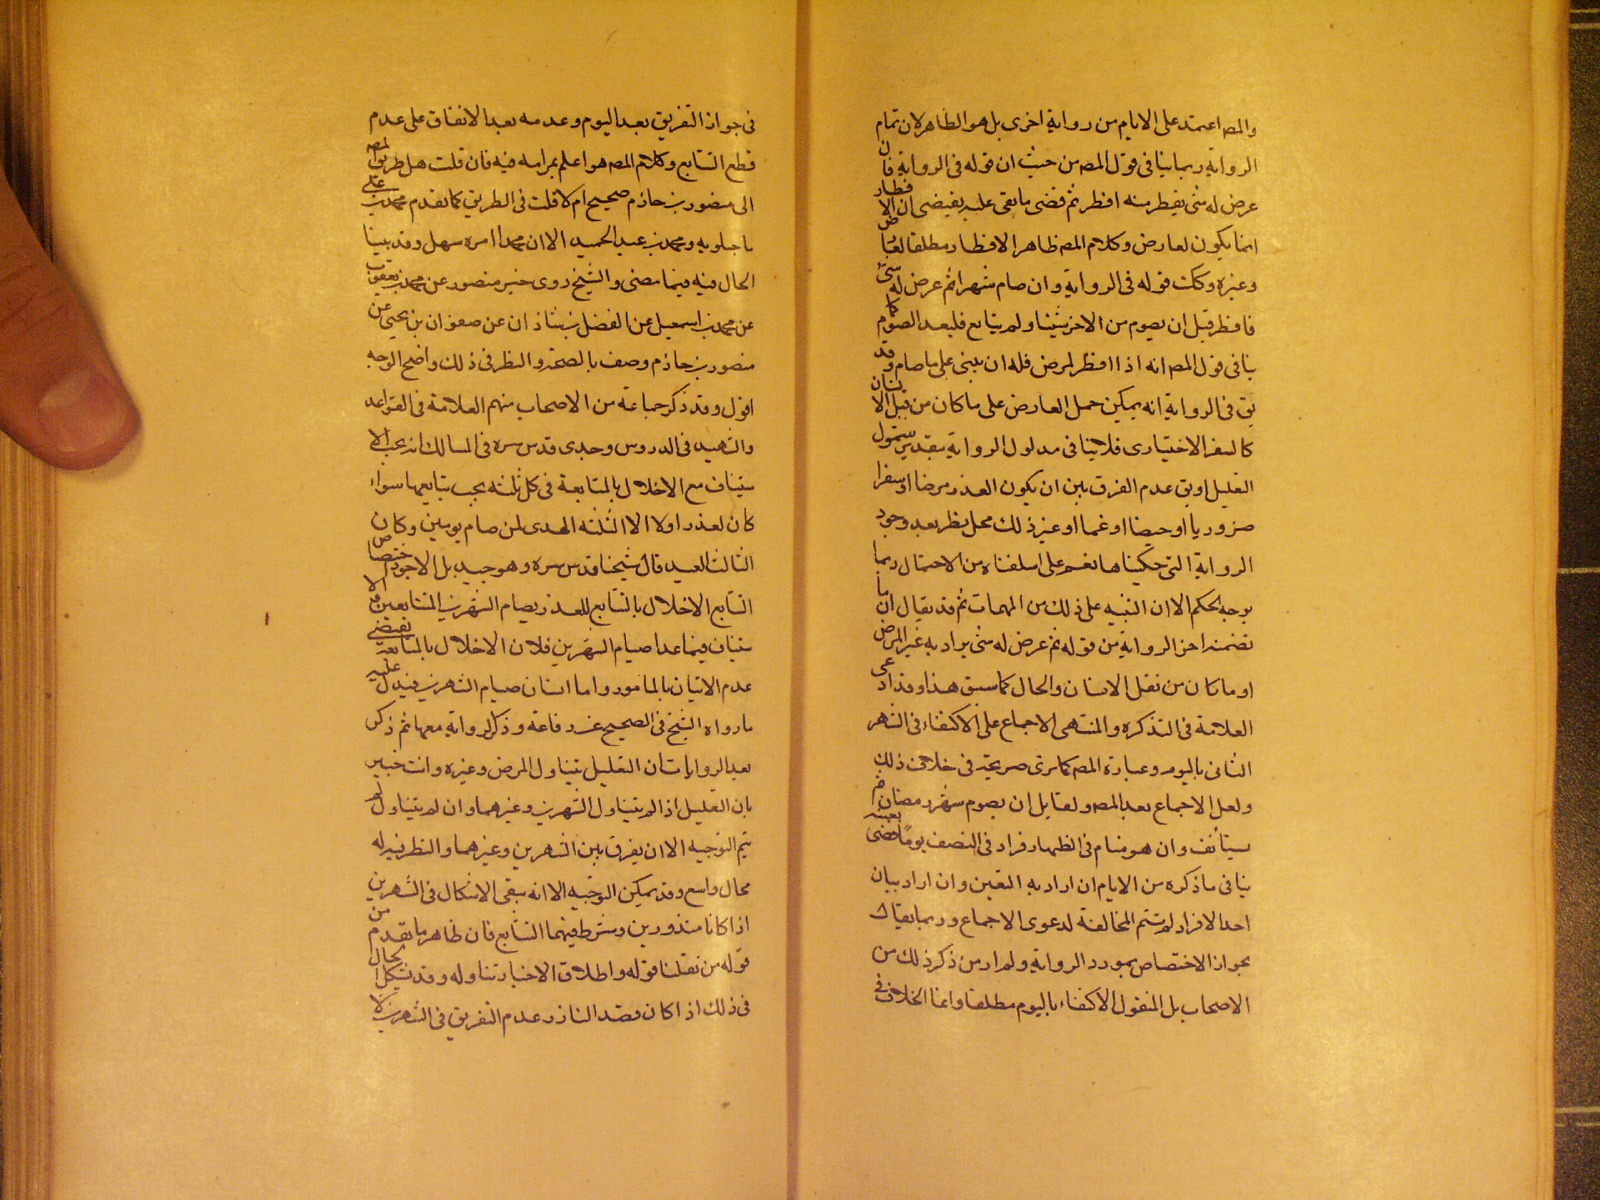 والمص اعتمد على الايام من رواية اخرى بل هو الظاهر لان تمام
الرواية ربما ينافى قول المص من حيث ان قوله فى الرواية فان
عرض له شئ يفطر منه افطر ثم قضى ما بقى عليه يقتضى ان الافطار
انما يكون لعارض وكلام المص ظاهر الافطار مطلقا لعارض
وغيره وكك قوله فى الرواية وان صام شهرا ثم عرض له شئ
فافطر قبل ان يصوم من الاخر شيئا ولم يتابع فليعد الصوم كما
ينافى قول المص انه اذا افطر لمرض فله ان يبنى على ما صام وقد
يق فى الرواية انه يمكن حمل العارض على ما كان من قبل الانسان
كالسفر الاختيارى فلا ينافى مدلول الرواية بتقدير شمول
التعليل او يق عدم الفرق بين ان يكون العذر مرضا او سفرا
ضروريا او حيضا او غما او غير ذلك محل نظر بعد وجود
الرواية التى حكيناها نعم على ما سلفناه من الاحتمال ربما
يوجه الحكم الا ان التنبيه على ذلك من المهمات ثم قد يقال ان ما
تضمنه اخر الرواية من قوله ثم عرض له شئ يراد به غير المرض
او ما كان من فعل الانسان والحال كما سبق هذا وقد ادعى
العلامة فى التذكره والمنتهى الاجماع على الاكتفاء فى الشهر
الثانى باليوم وعبارة المص كما ترى صريحة فى خلاف ذلك
ولعل الاجماع بعد المص ولقائل ان يصوم شهر رمضان ثم
يستأنف وان هو صام فى الظهار فزاد فى النصف يوما قضى بقيته
ينافى ما ذكره من الايام ان اراد به التعين وان اراد بيان
احد الافراد لم تتم المخالفة لدعوى الاجماع وربما يقال
بجواز الاختصاص بمورد الرواية ولم ار من ذكر ذلك من
الاصحاب بل المنقول الاكتفاء باليوم مطلقا وانما الخلاف فى
فى جواز التفريق بعد اليوم وعدمه بعد الاتفاق على عدم
قطع التتابع وكلام المص هو اعلم بمرامه فيه فان قلت هل طريق المص
الى منصور بن حازم صحيح ام لا قلت فى الطريق كما تقدم محمد بن على
ماجيلويه ومحمد بن عبد الحميد الا ان محمدا امره سهل وقد بينا
الحال فيه فيما مضى والشيخ روى خبر منصور عن محمد بن يعقوب
عن محمد بن اسمعيل عن الفضل بن شاذان عن صفوان بن يحيى عن
منصور بن حازم وصف بالصحة والنظر فى ذلك واضح الوجه
اقول وقد ذكر جماعة من الاصحاب منهم العلامة فى القواعد
والشهيد فى الدروس وجدى قدس سره فى المسالك انه يجب الا
ستيناف مع الاخلال بالمتابعة فى كل ثلثة يجب تتابعها سواء
كان لعذر او لا الا ثلثة الهدى لمن صام يومين وكان
الثالث العيد قال شيخنا قدس سره وهو جيد بل الاجود اختصاص
التتابع الاخلال بالتتابع للعذر بصيام الشهرين المتتابعين اما الا
ستيناف فيما عدا صيام الشهرين فلان الاخلال بالمتابعة يقتضى
عدم الاتيان بالمامور واما استثنان صيام الشهرين فيدل عليه
ما رواه الشيخ فى الصحيح عن رفاعة وذكر الرواية معها ثم ذكر
بعد الروايات ان التعليل يتناول المرض وغيره وانت خبير
بان التعليل اذا لم يتناول الشهرين وغيرهما وان لم يتناول لم
يتم التوجيه الا ان يفرق بين الشهرين وغيرهما والنظر فيه له
مجال واسع وقد يمكن التوجيه الا انه يبقى الاشكال فى الشهرين
اذا كانا منذورين وشرط فيهما التتابع فان ظاهر ما تقدم من
قوله من نقلنا قوله واطلاق الاخبار تناوله وقد يشكل الحال
فى ذلك اذا كان قصد الناذر عدم التفريق فى الشهرين لا